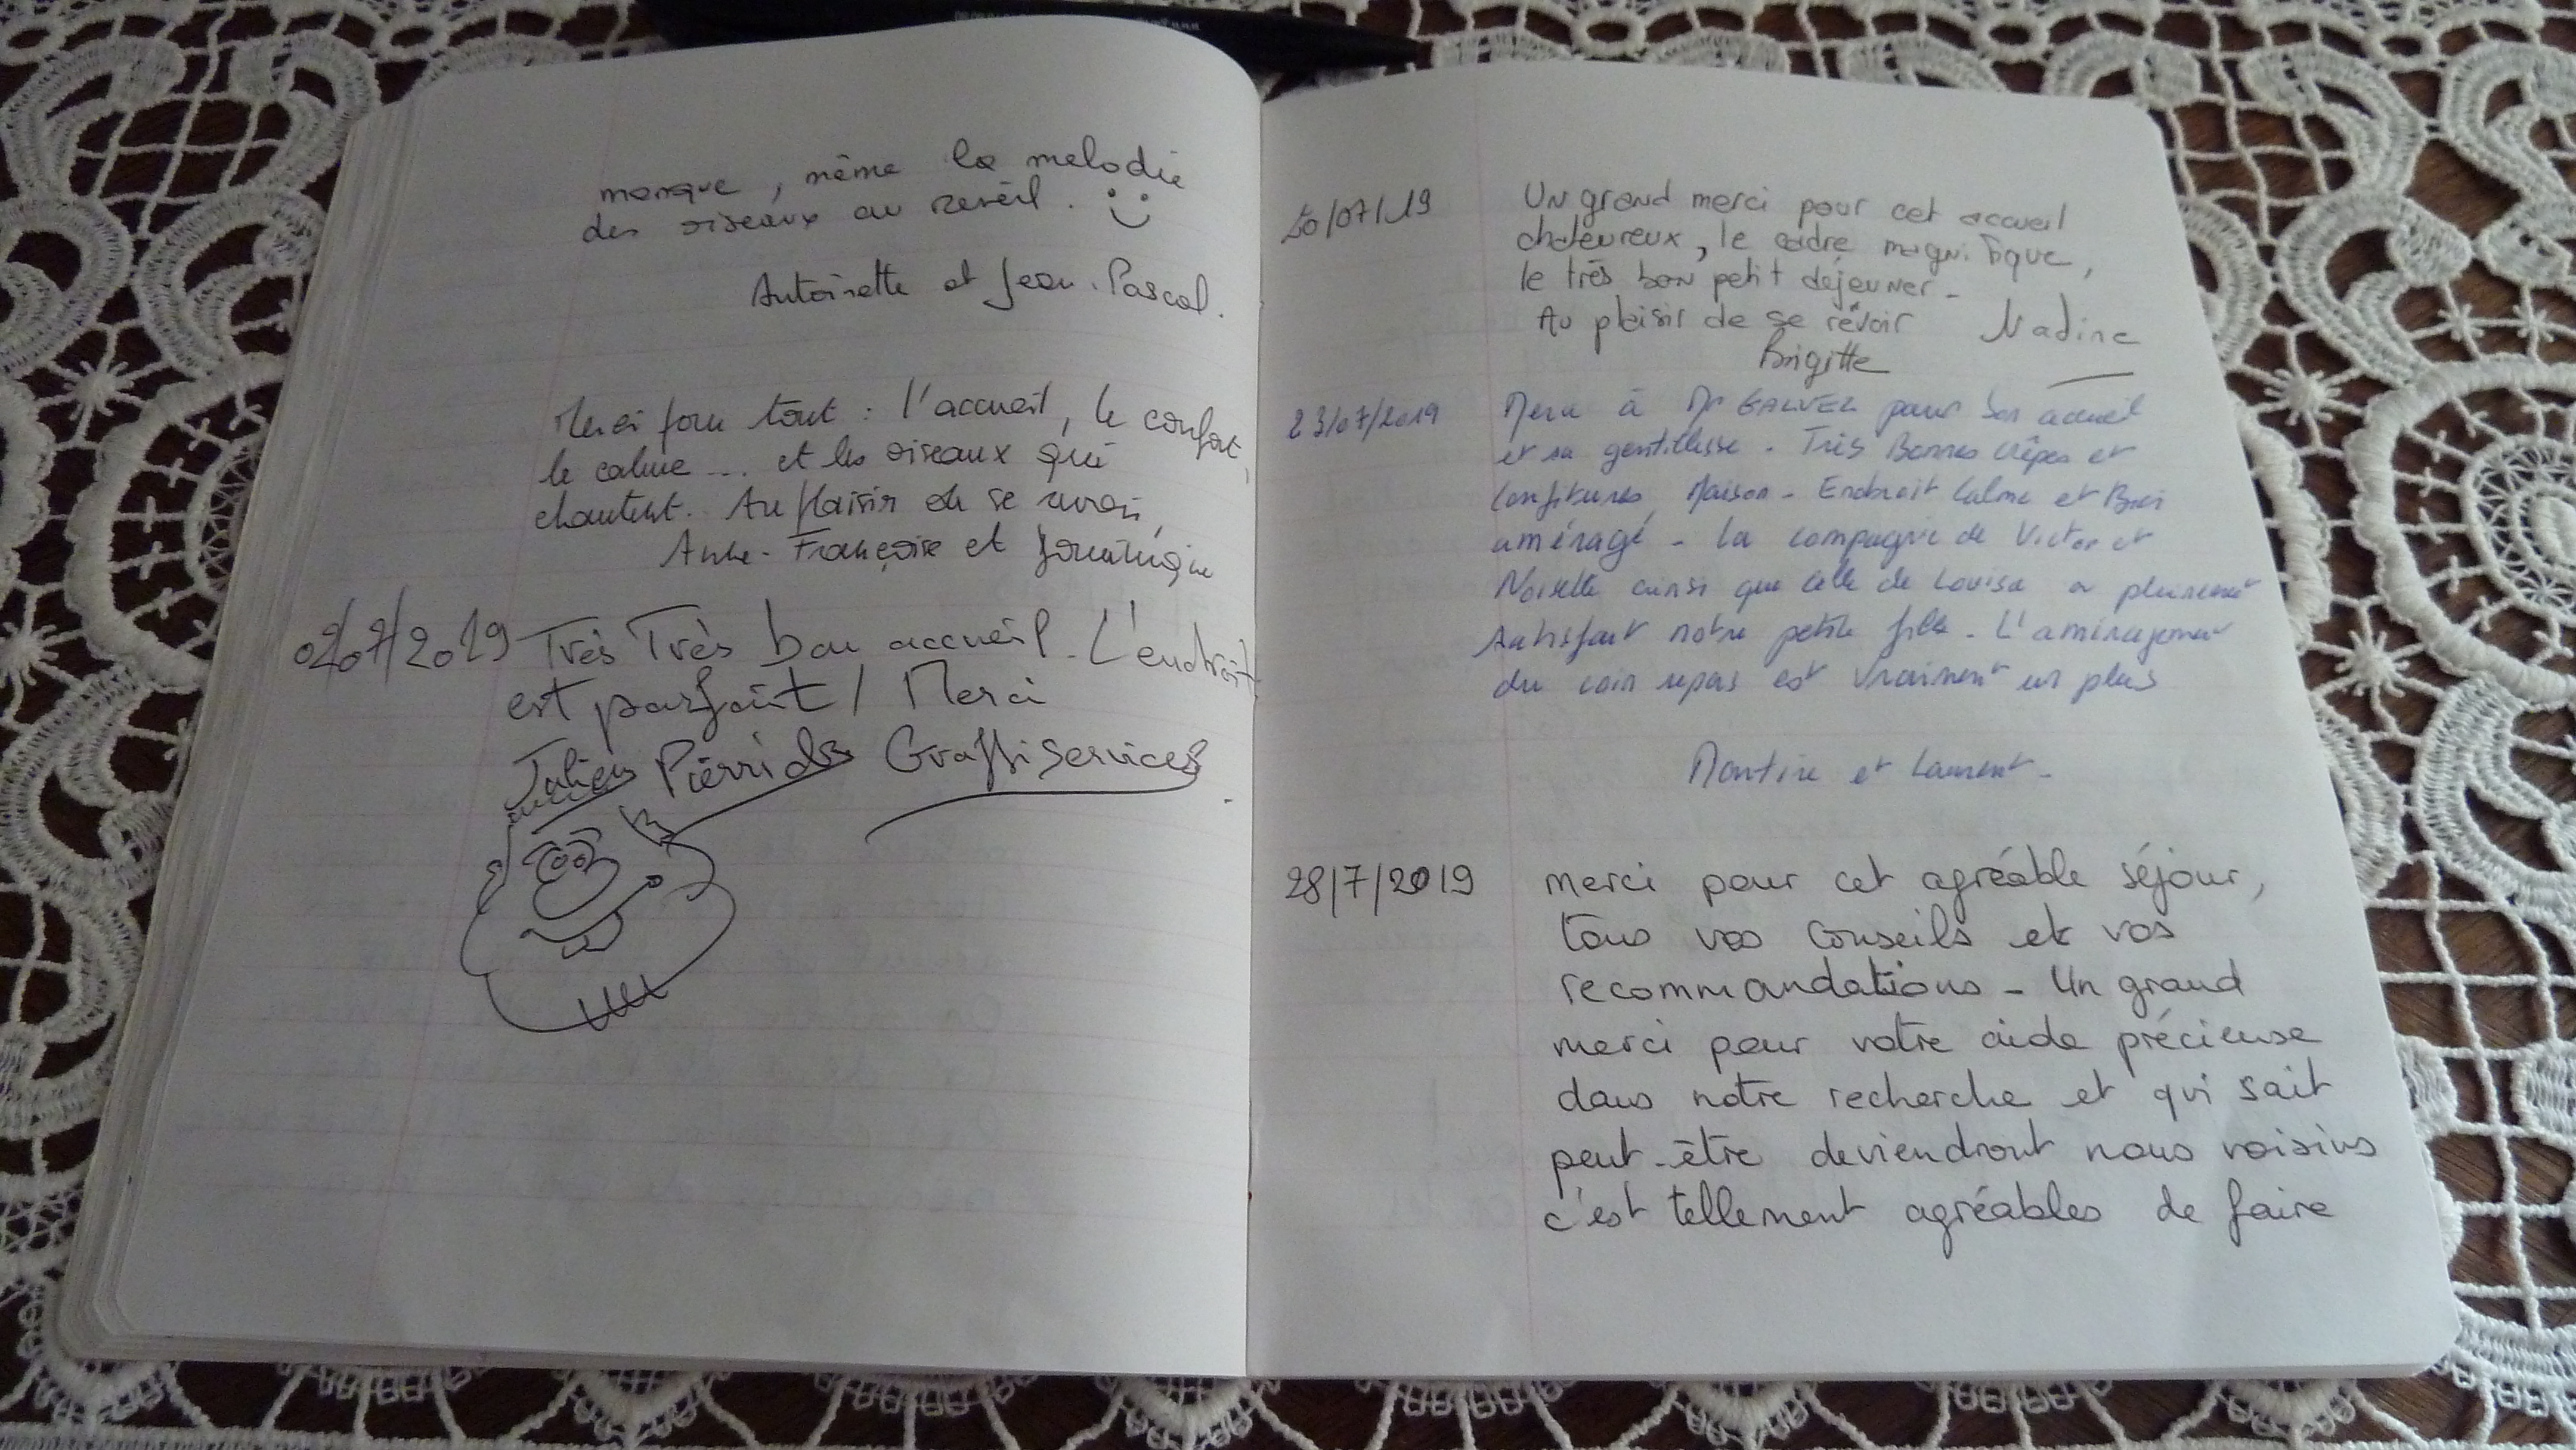 manque, même la melodie
des oiseaux au reveil.
Antoinette et Jean-Pascal.
Merci pour tout : l'accueil, le confort,
le calme ... et les oiseaux qui
chantent. Au plaisir de se revoir,
Anne-Françoise et
02/07/2019 Très Très bon accueil. L'endroit
est parfait ! Merci
Julien Pierrick Graffiservices
20/07/19 Un grand merci pour cet accueil
chaleureux, le cadre magnifique,
le très bon petit déjeuner -
Au plaisir de se revoir Nadine
Brigitte
23/07/2019 Merci à Mr GALVEZ pour son accueil
et sa gentillesse. Très Bonnes Crêpes et
Confitures Maison - Endroit Calme et Bien
aménagé - La compagnie de Victor et
Noisette ainsi que celle de Louisa a pleinement
satisfait notre petite fille - L'aménagement
du coin repas est vraiment un plus
et Laurent -
28/7/2019 merci pour cet agréable séjour,
tous vos conseils et vos
recommandations - Un grand
merci pour votre aide précieuse
dans notre recherche et qui sait
peut-être deviendront nous voisins
c'est tellement agréables de faire